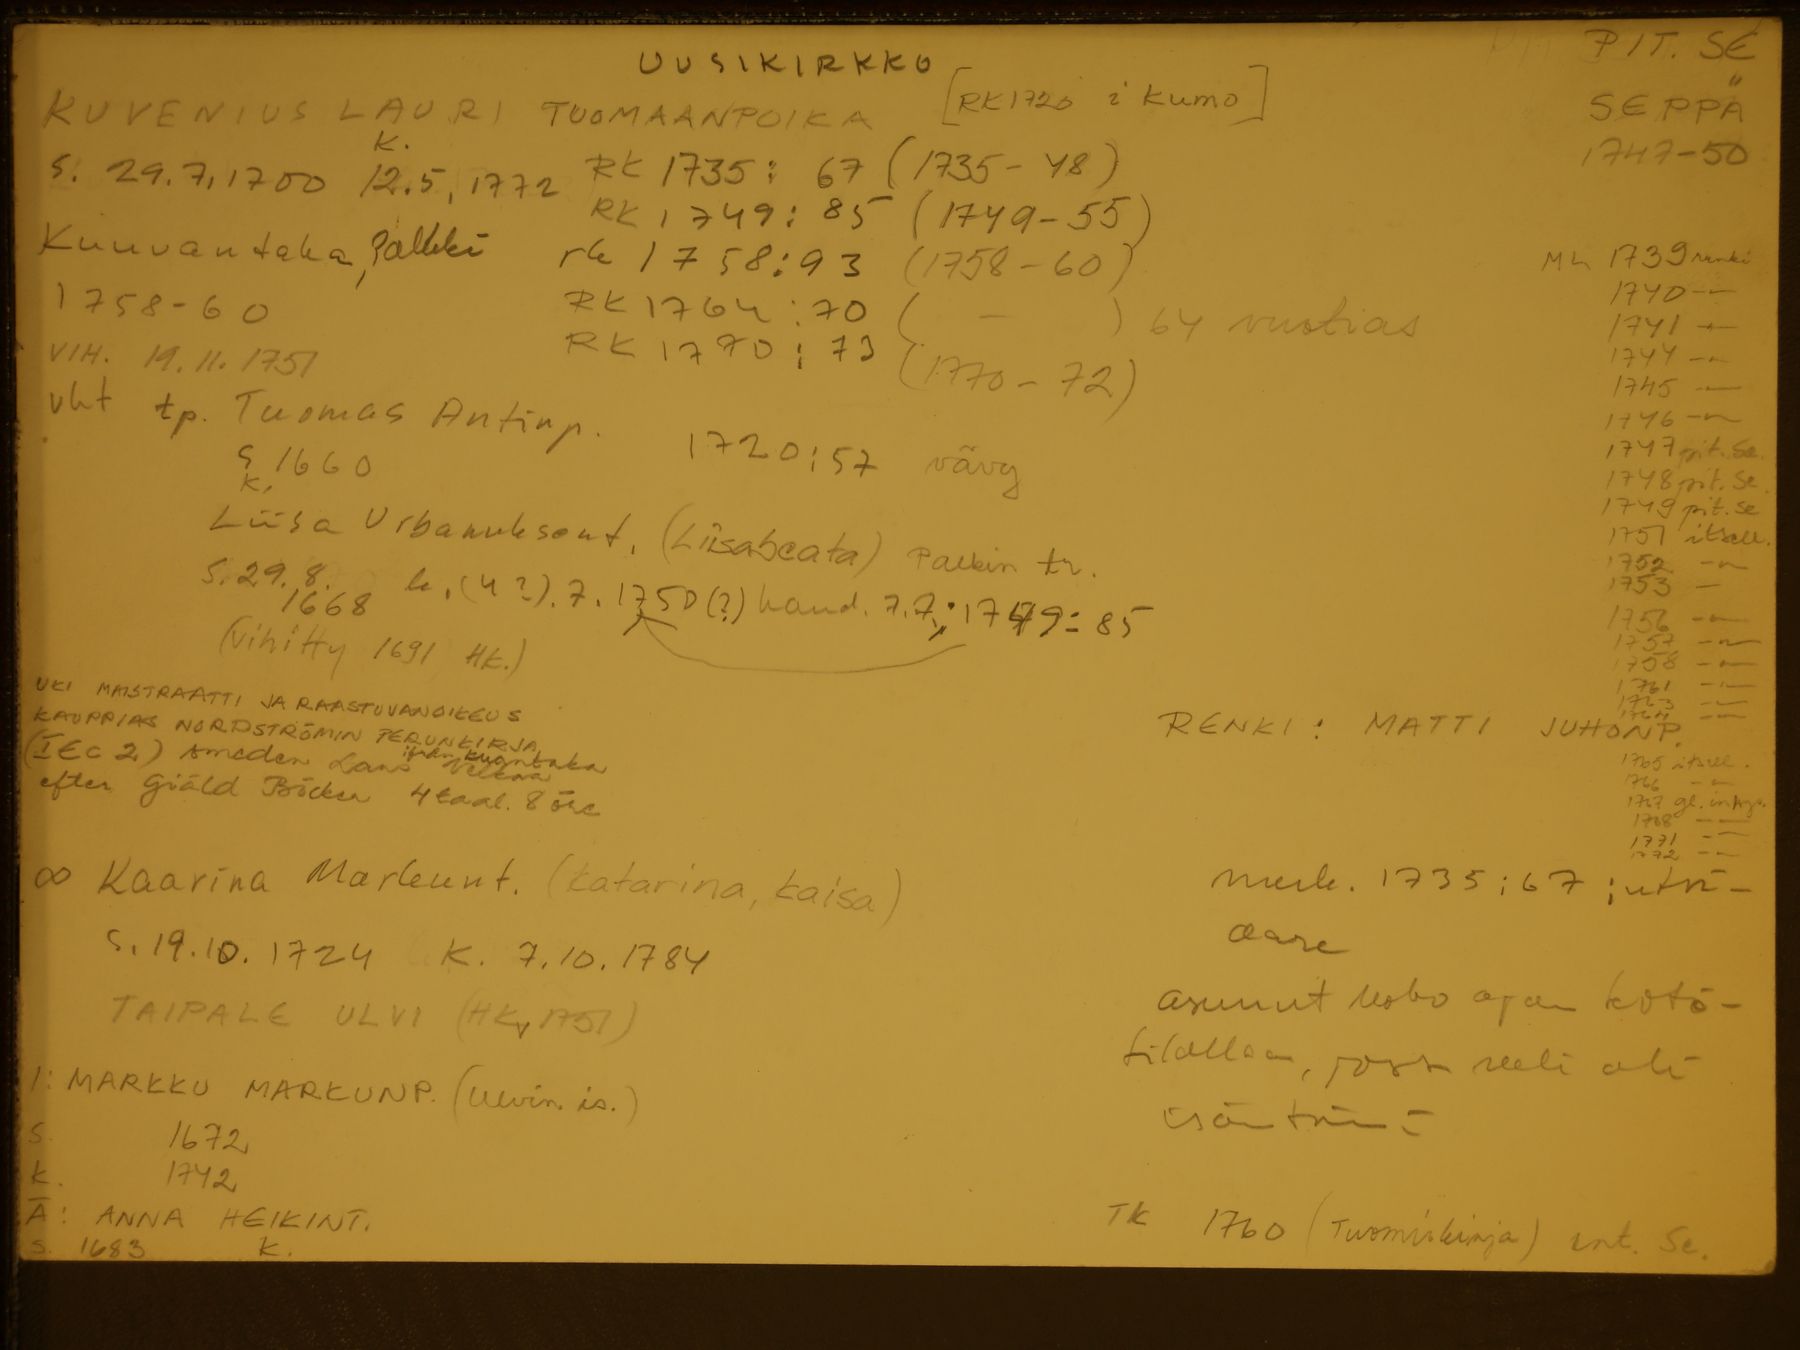 UUSIKIRKKO
PIT. SE
SEPPÄ
1747-50
KUVENIUS LAURI TUOMAANPOIKA [RK 1720 i Kumo]
S. 29.7.1700 K. 12.5.1772
RK 1735: 67 (1735-48)
RK 1749: 85 (1749-55)
rk 1758: 93 (1758-60)
RK 1764: 70 ( — ) 64 vuotias
RK 1770: 73 (1770-72)
Kuuvantaka, Palkki
1758-60
VIH. 19.11.1751
vht tp. Tuomas Antinp.
S 1660
K.
1720: 57 vävy
Liisa Urbanuksent. (Liisabeata) Palkin tr.
S. 29.8. 1668 k. (4?).7.1750(?) haud. 7.7.; 1749: 85
(Vihitty 1691 HK.)
UKI MAISTRAATTI JA RAASTUVANOIKEUS
KAUPPIAS NORDSTRÖMIN PERUNKIRJA
(IEC 2) smeden Lars
efter Giäld Böcker 4 taal. 8 öre
∞ Kaarina Markunt. (Katarina, Kaisa)
S. 19.10.1724 K. 7.10.1784
TAIPALE ULVI (HK, 1751)
I: MARKKU MARKUNP. (Ulvin is.)
S. 1672
K. 1742
Ä: ANNA HEIKINT.
S. 1683 K.
1739 renki
1740 -"-
1741 -"-
1744 -"-
1745 -"-
1746 -"-
1747 pit. se.
1748 pit. se.
1749 pit. se
1751 itsell.
1752 -"-
1753 —
1756 -"-
1757 -"-
1758 -"-
1761 -"-
1763 -"-
1764 -"-
RENKI: MATTI JUHONP.
1765 itsell.
1766 -"-
1767 gl.
1768 -"-
1771 -"-
1772 -"-
merk. 1735: 67;
asunut koko ajan koto-
tilallaan, jossa veli oli
isäntänä
TK 1760 (Tuomiokirja) ent. Se.